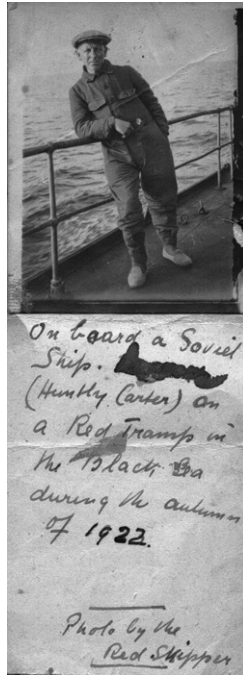 On board a Soviet
Ship.
(Huntly Carter) on
a Red Tramp in
the Black Sea
during the autumn
of 1922.
Photo by the
Red Skipper